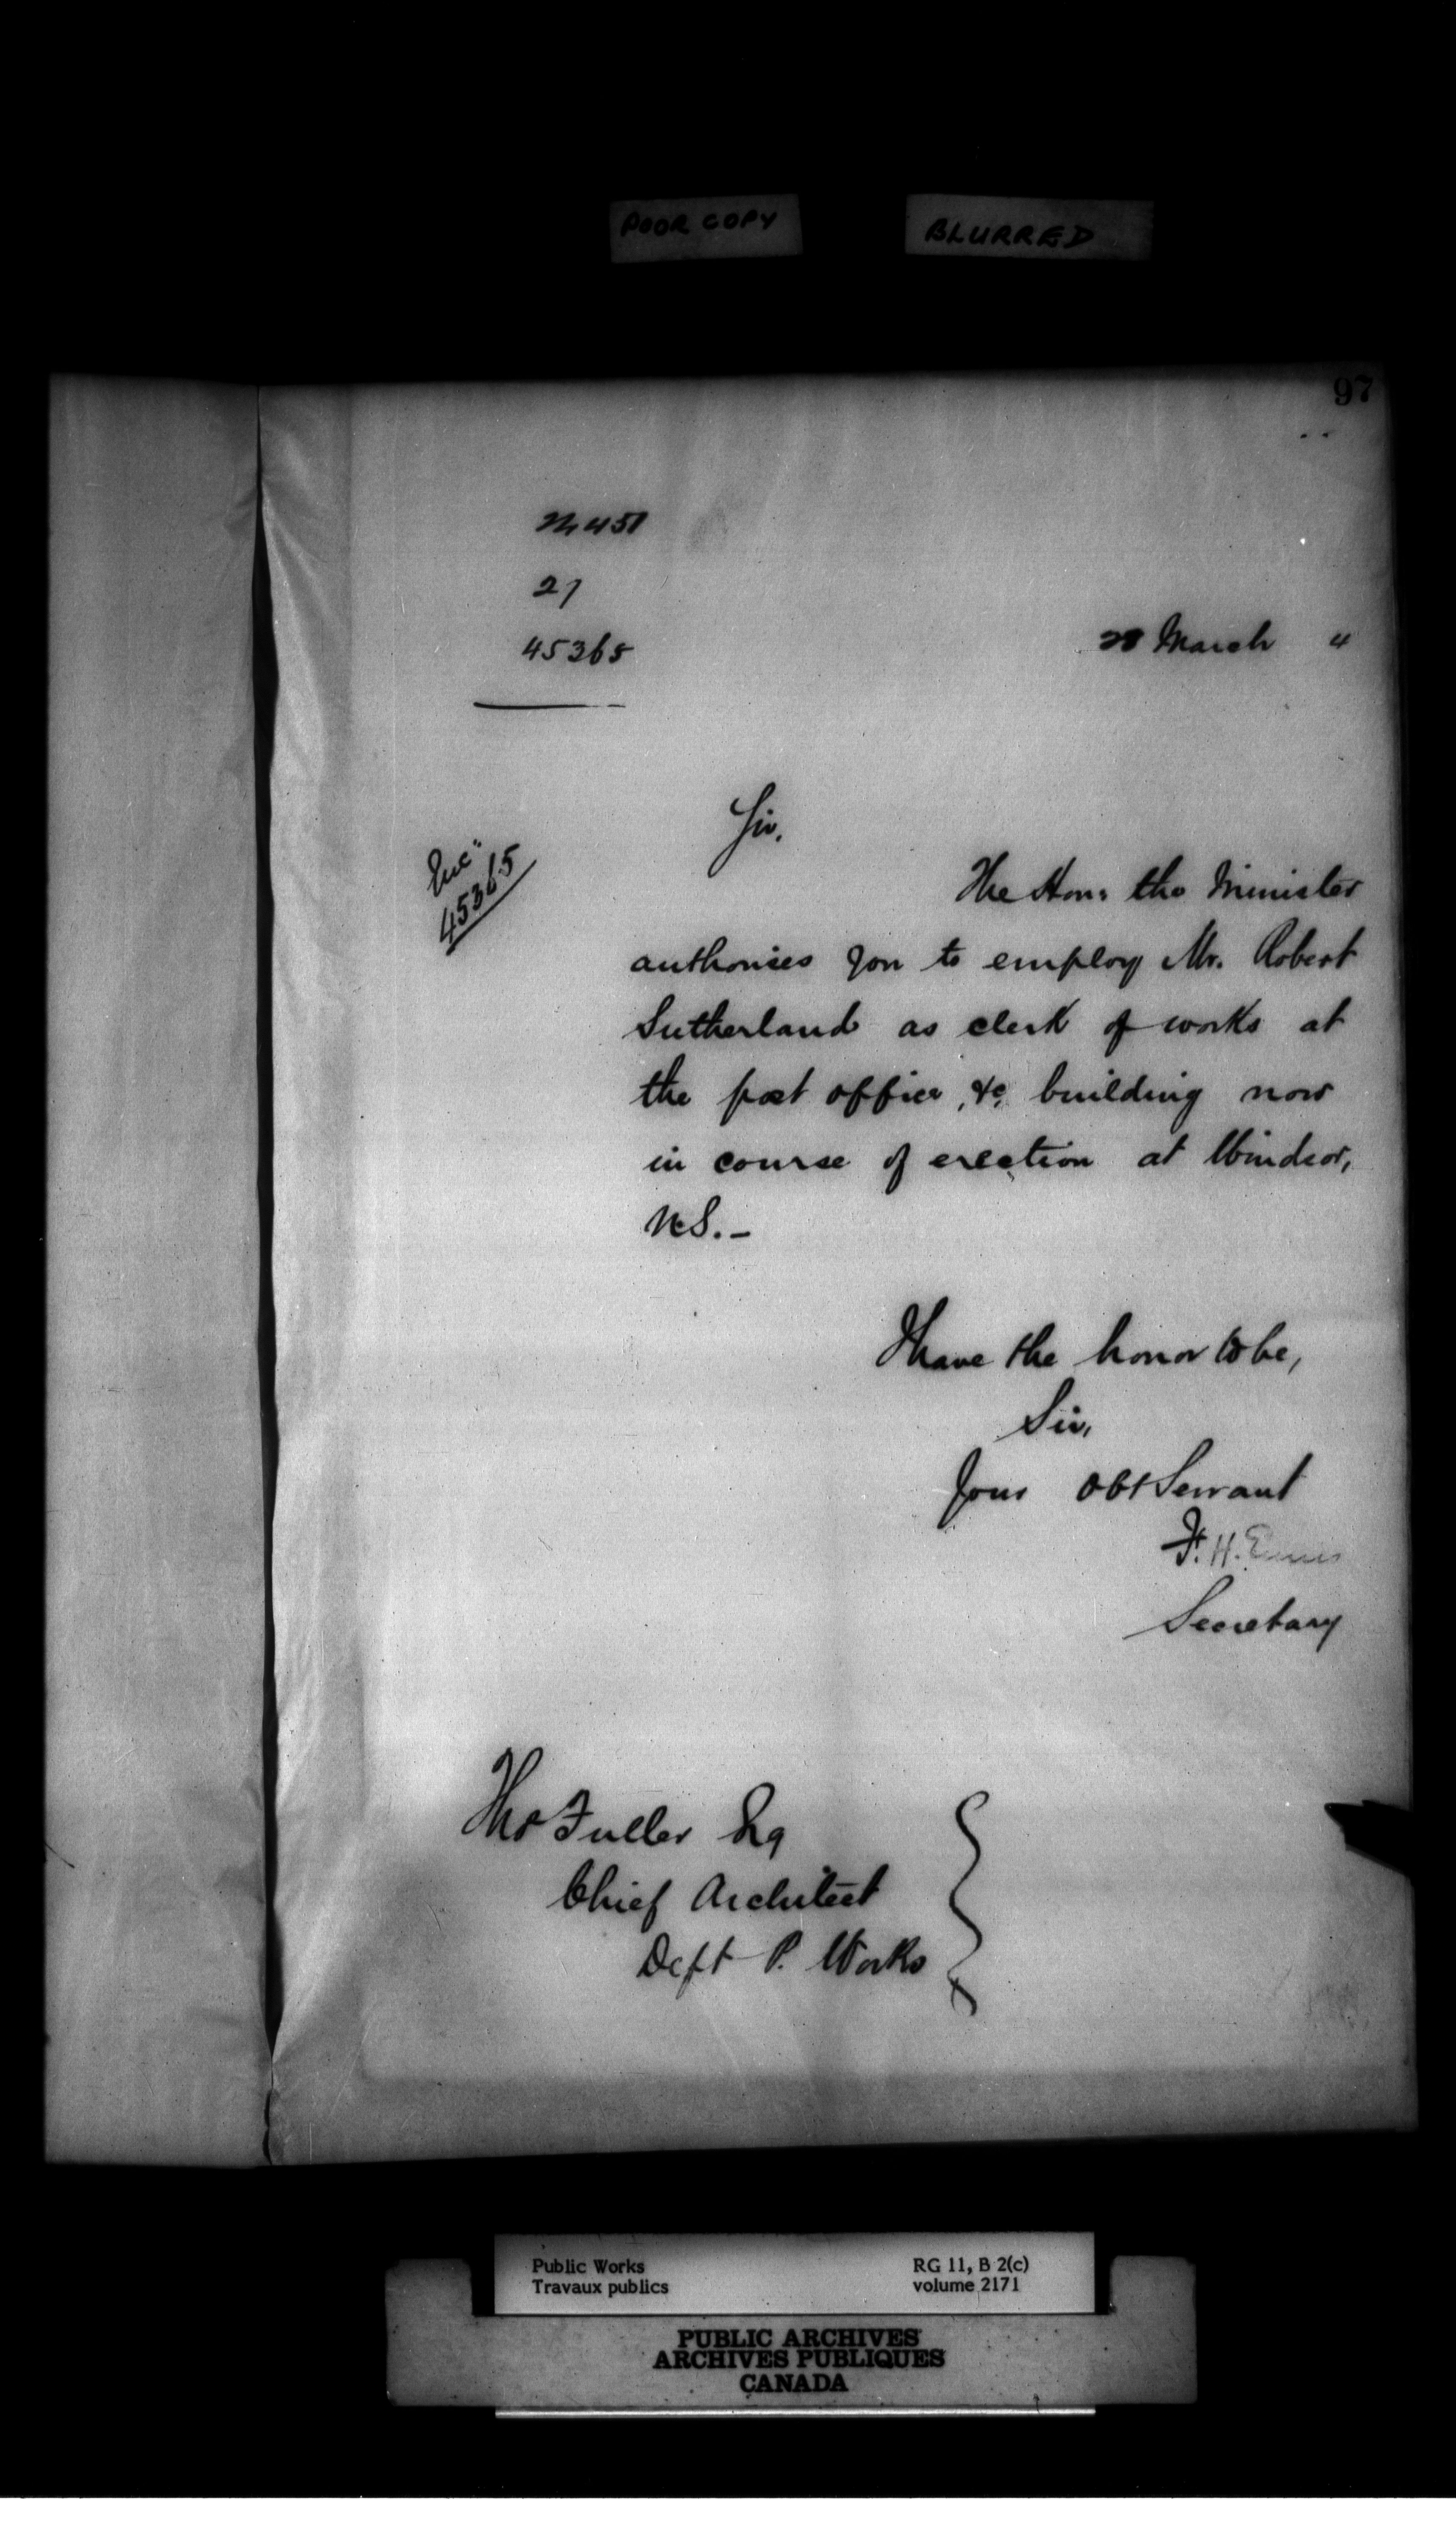 POOR COPY BLURRED
97
451
21
45365
28 March 4
Sir,
Inc"
45365
The Hon: the Minister
authorises you to employ Mr. Robert
Sutherland as clerk of works at
the post office, &c, building now
in course of erection at Windsor,
N.S. _
I have the honor to be,
Sir,
Your Obt Servant
F. H. Ennis
Secretary
Thos Fuller Esq
Chief Architect
Dept P. Works
Public Works RG 11, B 2(c)
Travaux publics volume 2171
PUBLIC ARCHIVES
ARCHIVES PUBLIQUES
CANADA